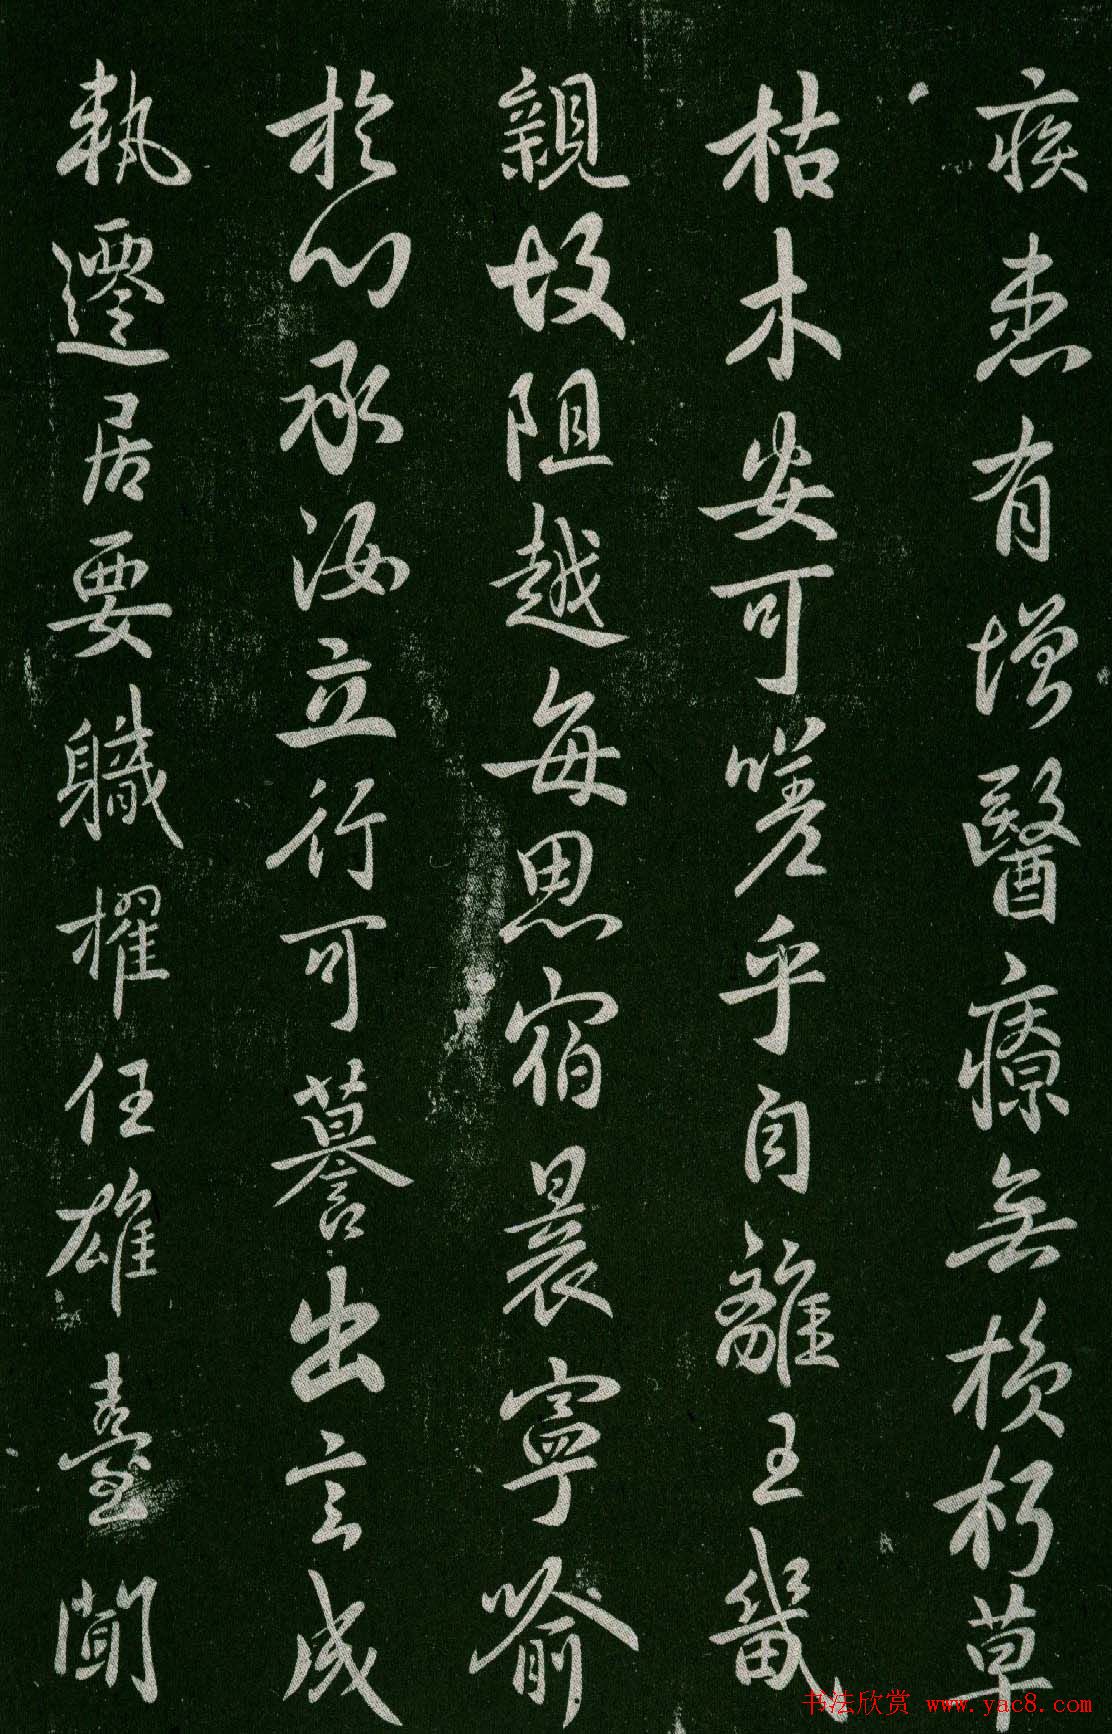 疾患有增醫療無損朽草
枯木安可嗟乎自離王畿
親故阻越每思宿昔寧喻
於心承汝立行可譽出言成
執遷居要職擢任雄臺聞
书法欣赏 www.yac8.com